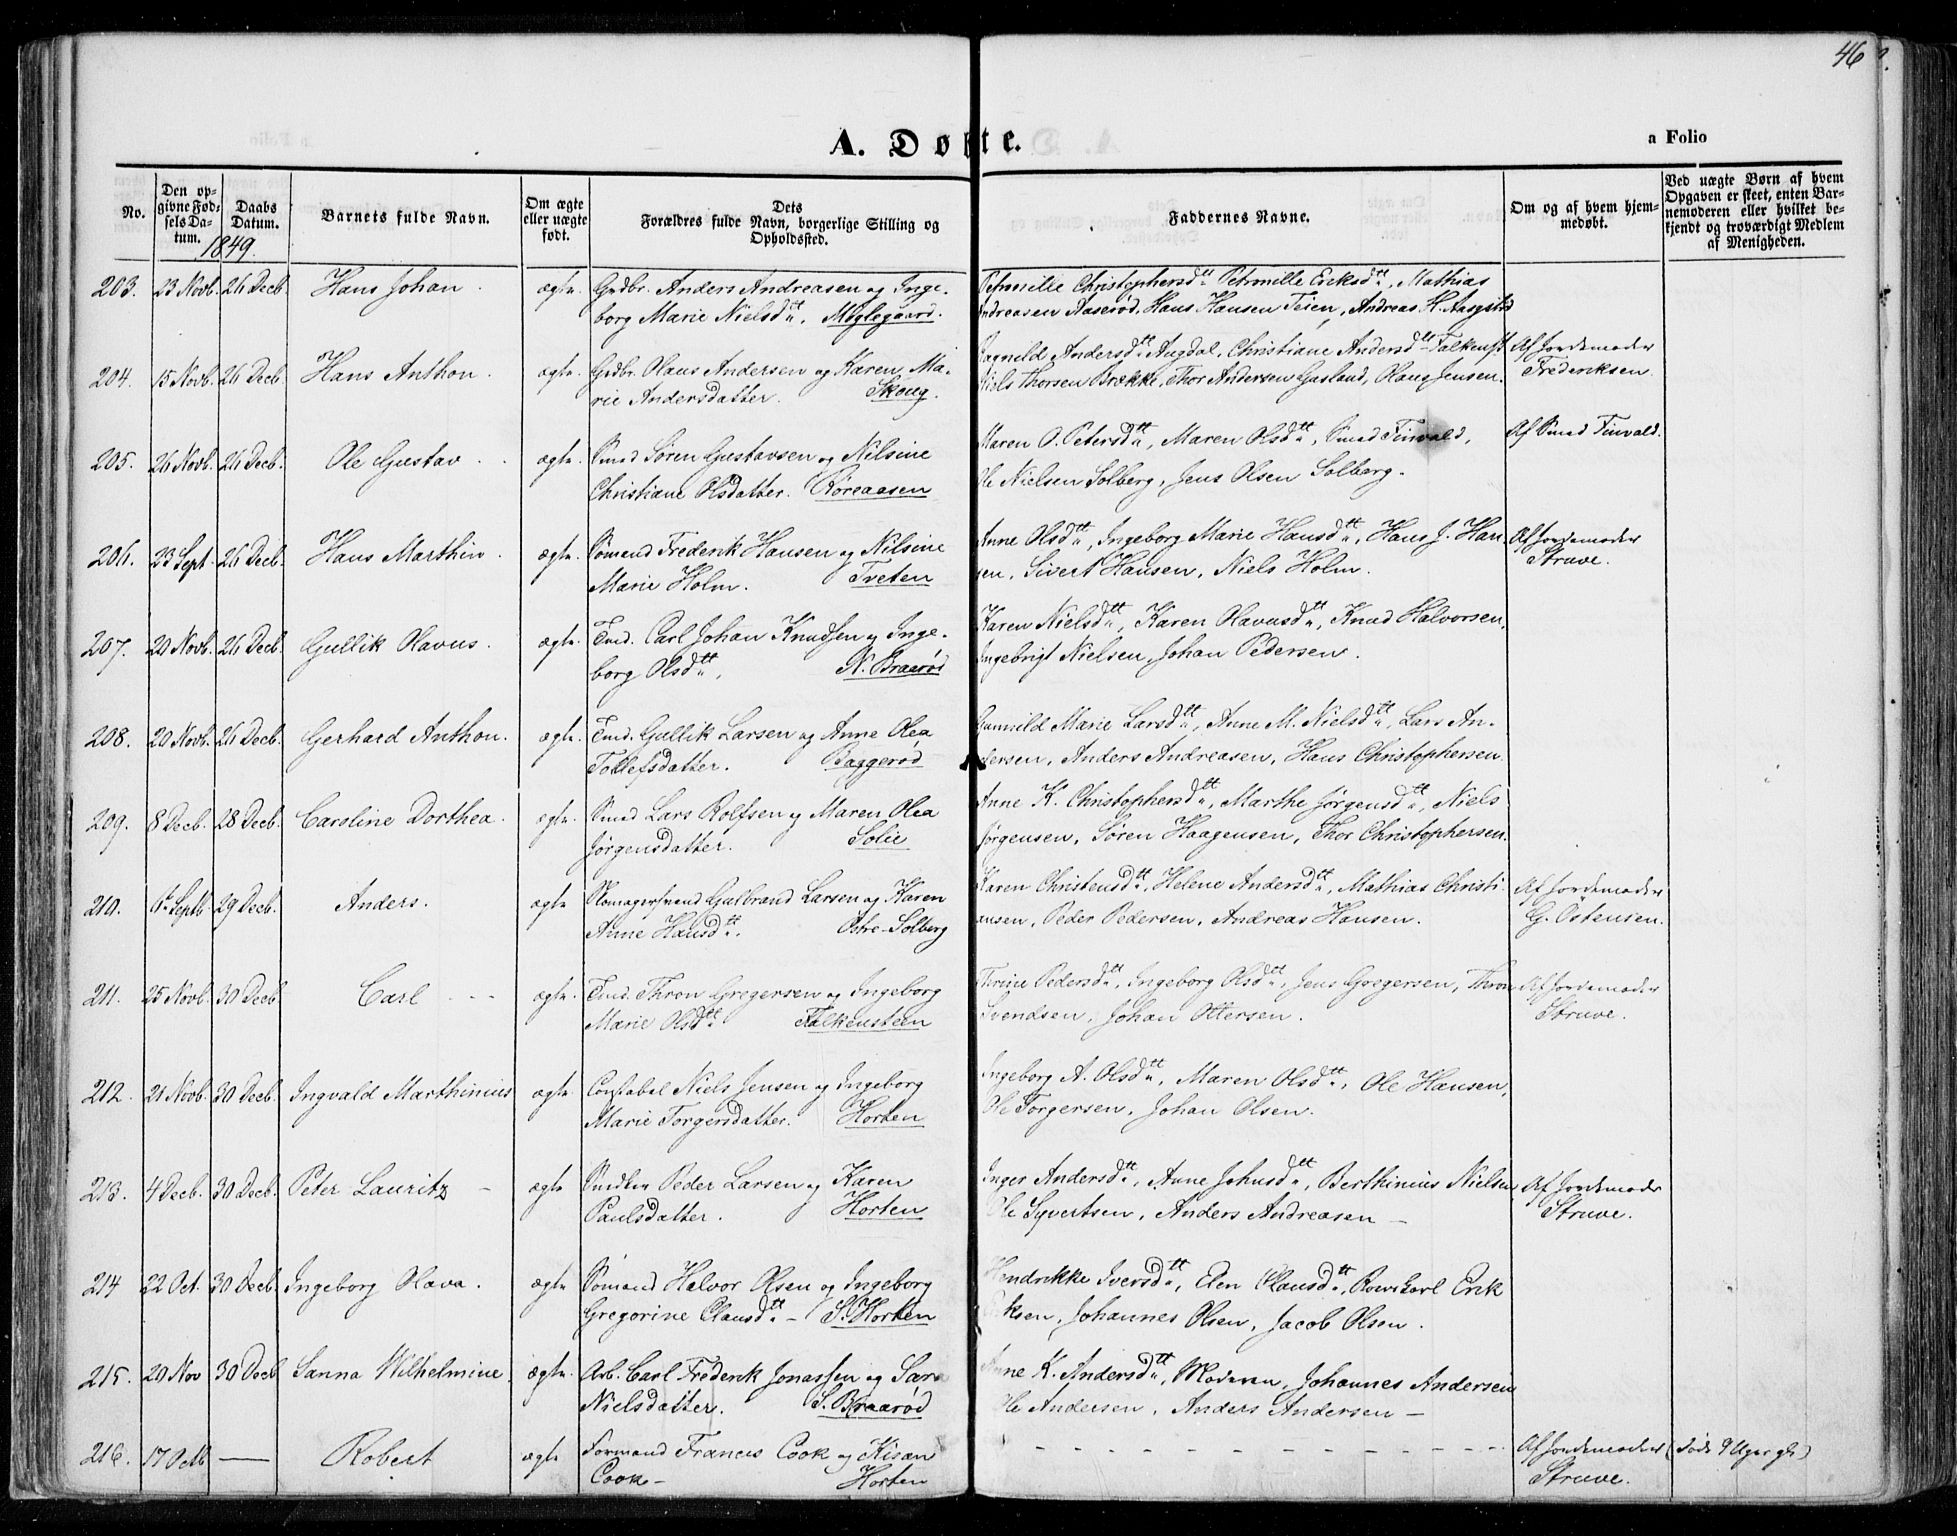 46
A. Døbte.
a Folio
No.
Den op-
givne Fød-
sels Da-
tum.
Daabs
Datum.
1849.
Barnets fulde Navn.
Om ægte
eller uægte
født.
Dets
Forældres fulde Navn, borgerlige Stilling og
Opholdssted.
Faddernes Navne.
Om og af hvem hjem-
medøbt.
Ved uægte Børn af hvem
Opgaven er skeet, enten Bar-
nemoderen eller hvilket be-
kjendt og troværdigt Medlem
af Menigheden.
203. 23 Novb. 26 Decb. Hans Johan. ægte. Grdbr. Anders Andreasen og Inge-
borg Marie Nielsdtt. Møglegaard.
Petronille Christophersdtt. Petronille Eriksdtt., Mathias
Andreasen Aaserød, Hans Hansen Teien, Andreas H.
204. 15 Novb. 26 Decb. Hans Anthon. ægte. Grdbr. Olaus Andersen og Karen Ma-
rie Andersdatter. Skoug.
Ragnild Andersdtt. Augdal, Christiane Andersdtt. Falkenst
Niels Thorsen Brække, Thor Andersen Gasland, Olaug Jensen.
Af Jordemoder
Frederiksen.
205. 26 Novb. 26 Decb. Ole Gustav. ægte. Smed Søren Gustavsen og Nilsine
Christiane Olsdatter. Røreaasen
Maren O. Petersdtt., Maren Olsdtt., Smed Tinvald,
Ole Nielsen Solberg, Jens Olsen Solberg.
Af Smed Tinvald.
206. 23 Sept. 26 Decb. Hans Marthin. ægte. Sømand Frederik Hansen og Nilsine
Marie Holm. Tveten
Anne Olsdtt., Ingeborg Marie Hansdtt., Hans J. Han-
sen, Sivert Hansen, Niels Holm.
Af Jordemoder
Struve.
207. 20 Novb. 26 Decb. Gullik Olavus. ægte. Tmd. Carl Johan Knudsen og Inge-
borg Olsdtt. N. Braarød
Karen Nielsdtt., Karen Olavusdtt., Knud Halvorsen,
Ingebrigt Nielsen, Johan Pedersen.
208. 20 Novb. 26 Decb. Gerhard Anthon. ægte. Tmd. Gullik Larsen og Anne Olea
Tollefsdatter. Baggerød
Gunnild Marie Larsdtt., Anne M. Nielsdtt., Lars An-
dersen, Anders Andreasen, Hans Christophersen.
209. 8 Decb. 28 Decb. Caroline Dorthea. ægte. Smed Lars Rolfsen og Maren Olea
Jørgensdatter. Solie
Anne K. Christophersdtt., Marthe Jørgensdtt., Niels
Jørgensen, Søren Haagensen, Thor Christophersen.
210. Septb 29 Decb. Anders. ægte Skomagersvend Gulbrand Larsen og Karen
Anne Hansdtt. Østre-Solberg
Karen Christensdtt., Helene Andersdtt., Mathias Christi-
ansen, Peder Pedersen, Andreas Hansen.
Af Jordemoder
G. Østensen.
211. 25 Novb. 30 Decb. Carl - - - ægte. Tmd. Thron Gregersen og Ingeborg
Marie Olsdtt. Falkensteen
Thrine Pedersdtt., Ingeborg Olsdtt., Jens Gregersen, Thron
Svendsen, Johan Ottersen.
Af Jordemoder
Struve.
212. 21 Novb. 30 Decb. Ingvald Marthinius ægte. Constabel Niels Jensen og Ingeborg
Marie Torgersdatter. Horten
Ingeborg A. Olsdtt., Maren Olsdtt., Ole Hansen,
Ole Torgersen, Johan Olsen.
213. 4 Decb. 30 Decb. Peter Lauritz - ægte Peder Larsen og Karen
Paulsdatter. Horten
Inger Andersdtt., Anne Johnsdtt., Berthinius Nielsen
Ole Syvertsen, Anders Andreasen -
Af Jordemoder
Struve.
214 22 Oct. 30 Decb. Ingeborg Olava. ægte Sømand Halvor Olsen og Ingeborg
Gregorine Clausdtt. - S. Horten
Hendrikke Iversdtt., Elen Olausdtt., Rorskarl Erik
Eriksen, Johannes Olsen, Jacob Olsen.
215. 20 Nov 30 Decb Sanna Wilhelmine, ægte. Arb. Carl Frederik Jonassen og Sara
Nielsdatter. S. Braarød
Anne K. Andersdtt., Moderen, Johannes Andersen
Ole Andersen, Anders Andersen -
216. 17 Octb — Robert ægte Formand Francis Cook og Kisan
Cook - Horten
- - - - - - - - -
Af Jordemoder
Struve.
(død 9 Uger gl.)